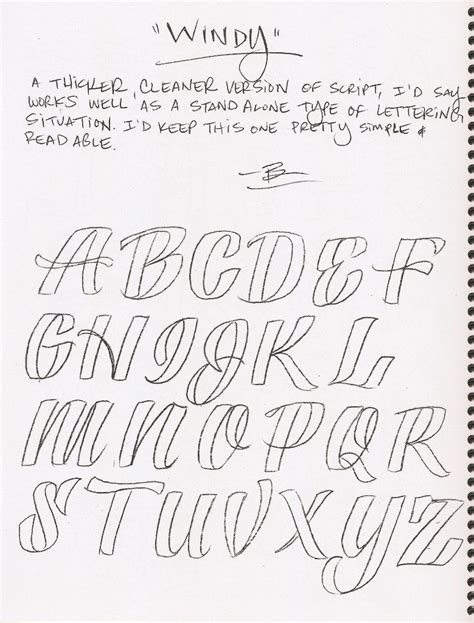 "WINDY"
A THICKER, CLEANER VERSION OF SCRIPT, I'D SAY
WORKS WELL AS A STAND ALONE TYPE OF LETTERING
SITUATION. I'D KEEP THIS ONE PRETTY SIMPLE &
READABLE.
B
A B C D E F
G H I J K L
M N O P Q R
S T U V X Y Z